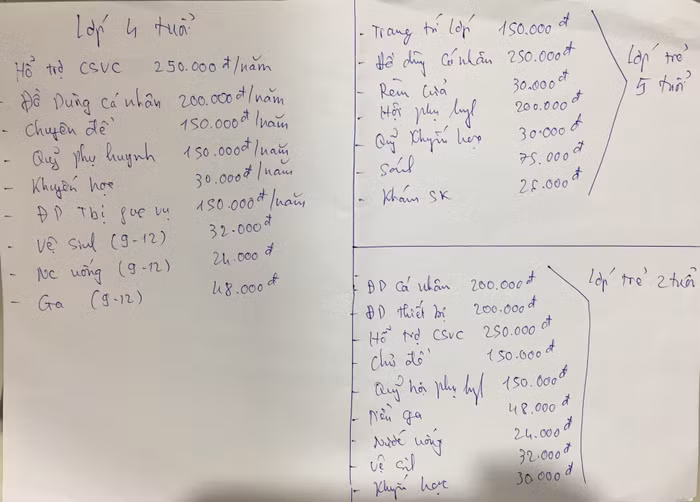 Lớp 4 tuổi
Hổ trợ CSVC 250.000đ/năm
- Đồ Dùng cá nhân 200.000đ/năm
- Chuyên đề 150.000đ/năm
- Quỹ phụ huynh 150.000đ/năm
- Khuyến học 30.000đ/năm
- ĐD Thị 150.000đ/năm
- Vệ sinh (9-12) 32.000đ
- Nc uống (9-12) 24.000đ
- Ga (9-12) 48.000đ
- Trang trí lớp 150.000đ
- Đồ dùng Cá nhân 250.000đ
- Rèm cửa 30.000đ
- Hội phụ huynh 200.000đ
- Quỹ Khuyến học 30.000đ
- Sách 75.000đ
- Khám SK 25.000đ
Lớp trẻ
5 tuổi
- ĐD Cá nhân 200.000đ
- ĐD thiết bị 200.000đ
- Hổ trợ CSVC 250.000đ
- Chủ đề 150.000đ
- Quỹ hội phụ huynh 150.000đ
- ga 48.000đ
- Nước uống 24.000đ
- Vệ sinh 32.000đ
- Khuyến học 30.000đ
Lớp trẻ 2 tuổi